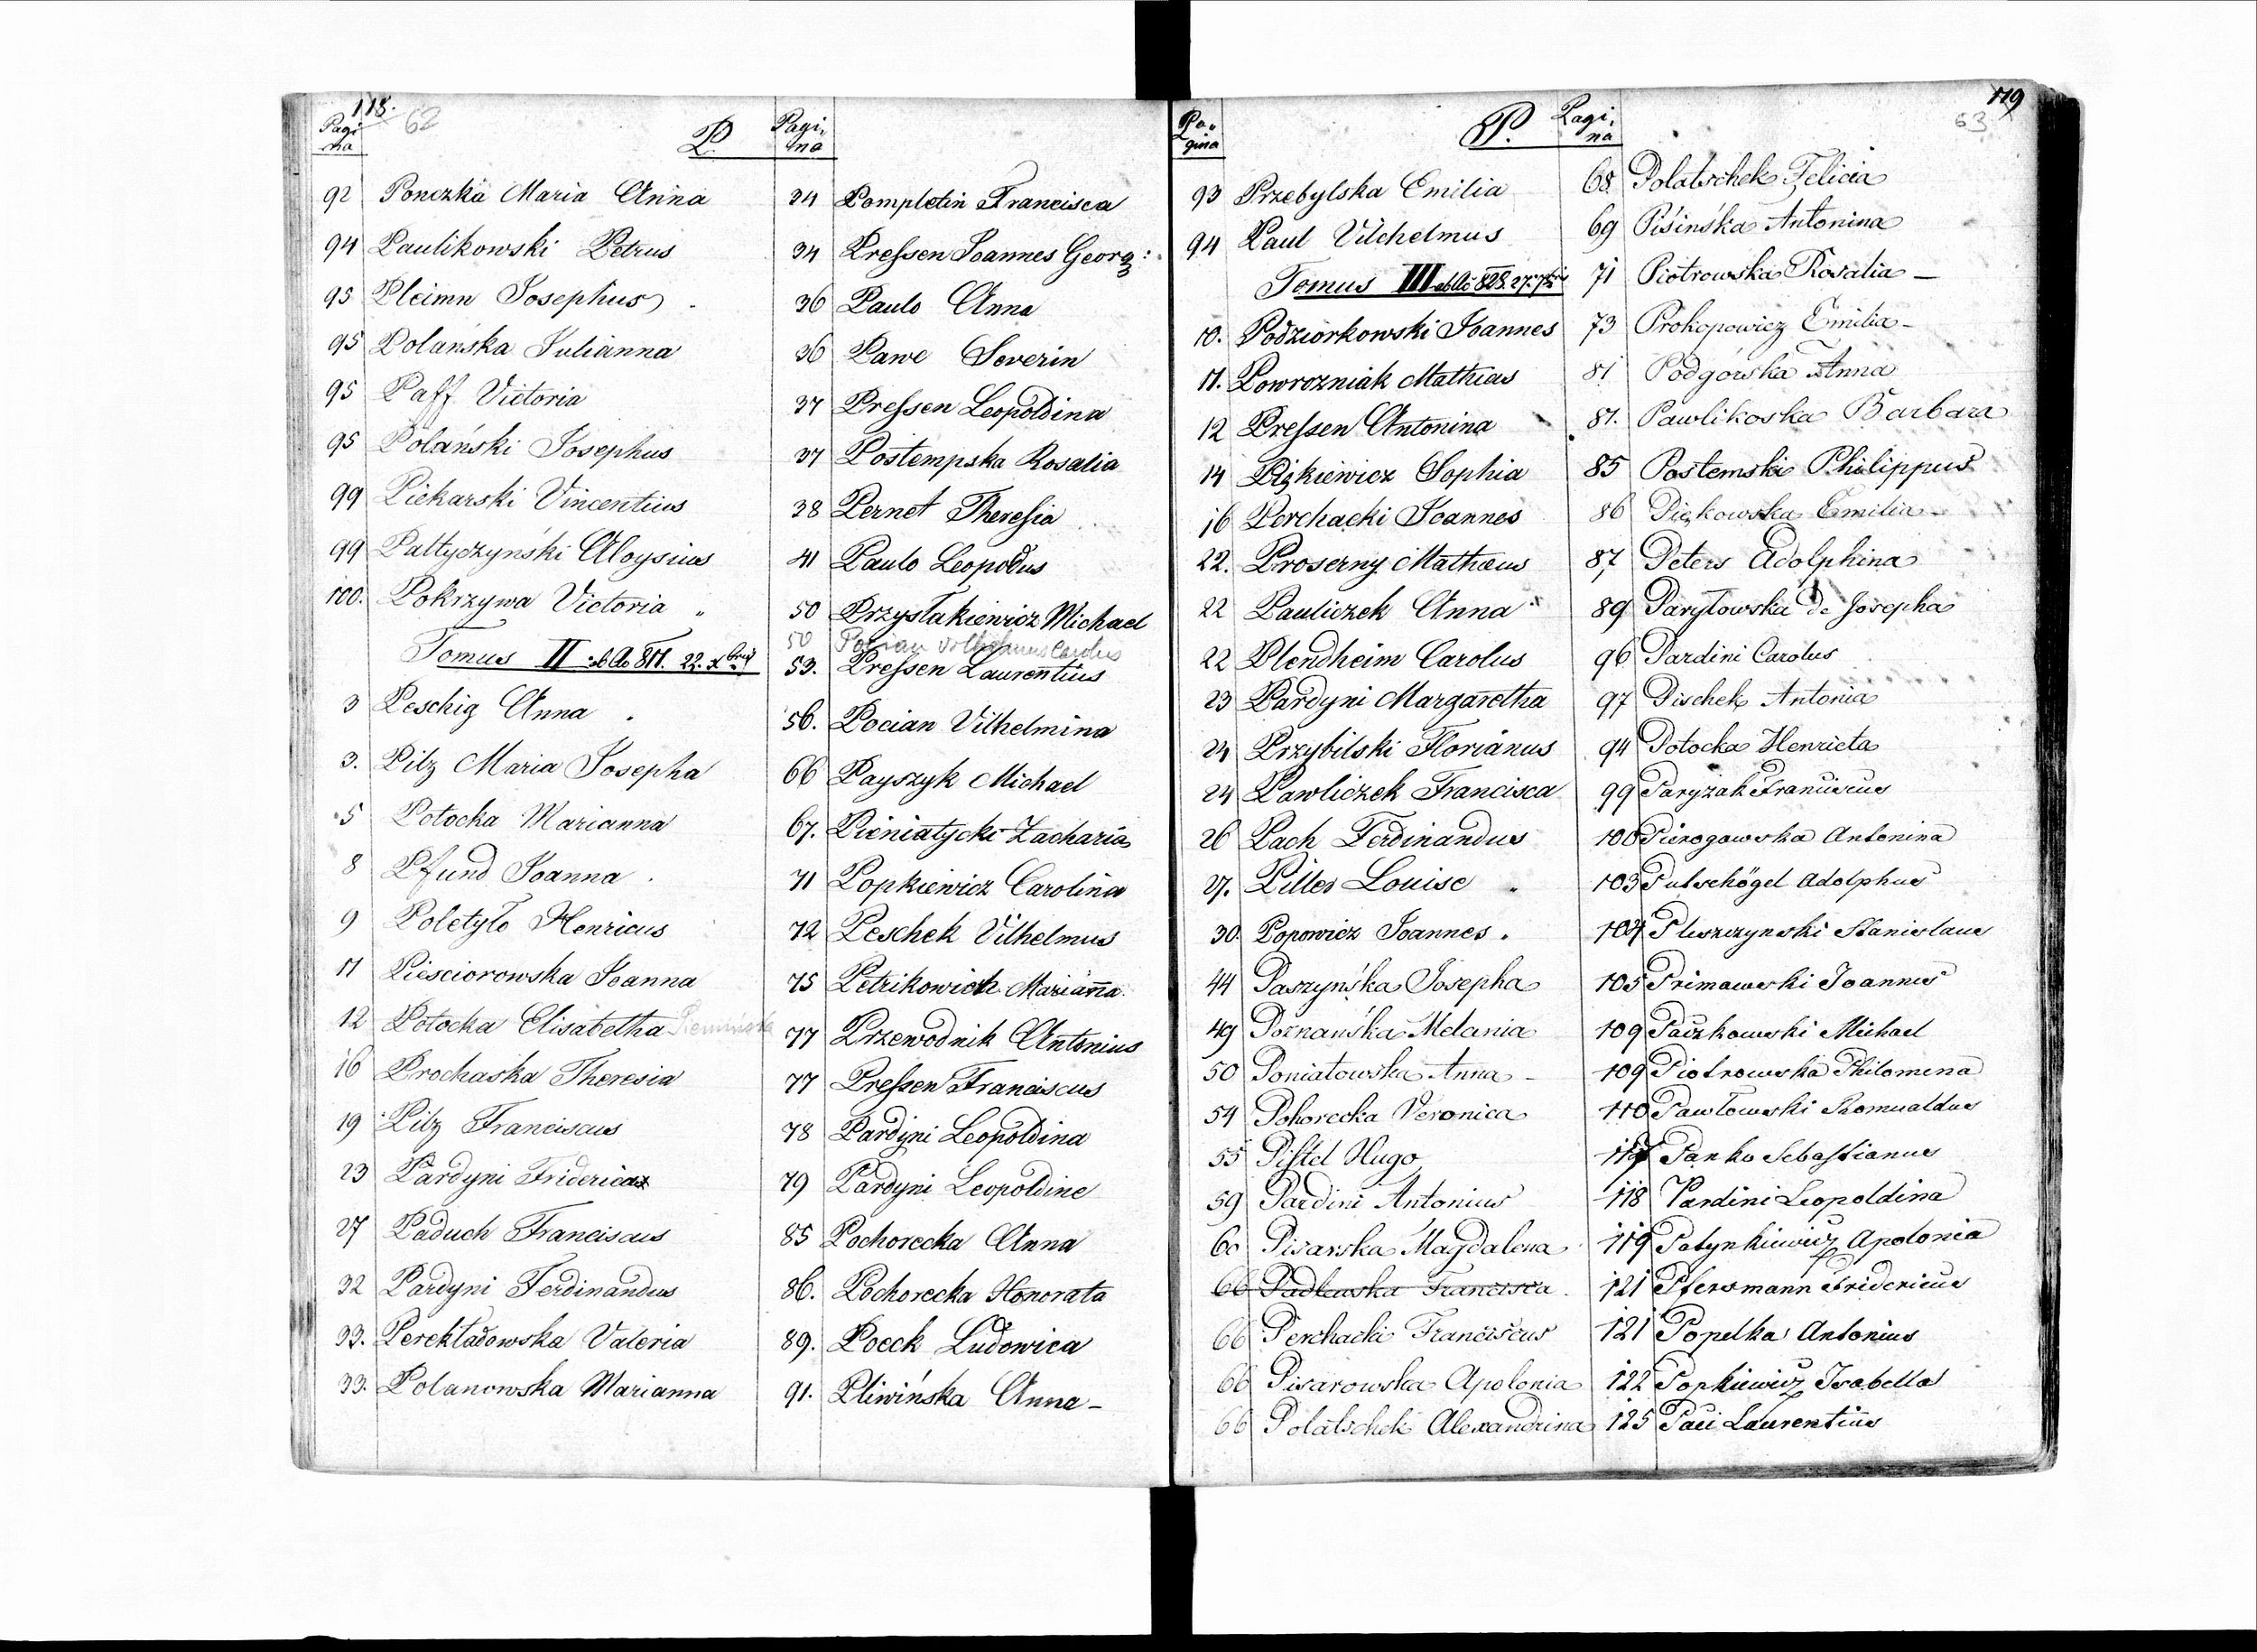 118.
62
Pagi
na
P.
92 Ponczka Maria Anna
94 Paulikowski Petrus
95 Pleimn Josephus
95 Polańska Julianna
95 Paff Victoria
95 Polański Josephus
99 Piekarski Vincentius
99 Paltyczyński Aloysius
100. Pokrzywa Victoria
Tomus II ab Ao 817. 22. Xbris
3 Peschig Anna
3. Pilz Maria Josepha
5 Potocka Marianna
8 Pfund Joanna
9 Poletyło Henricus
11 Piesciorowska Joanna
12 Potocka Elisabetha
16 Prochaska Theresia
19 Pilz Franciscus
23 Pardyni Friderica
27 Paduch Franciscus
32 Pardyni Ferdinandus
33. Perekładowska Valeria
33. Polanowska Marianna
Pagi,
na
34 Pompletin Francisca
34 Preſsen Joannes Georg:
36 Paulo Anna
36 Pawe Severin
37 Preſsen Leopoldina
37 Postempska Rosalia
38 Pernet Thereſia
41 Paulo Leopoldus
50 Przysłakiewicz Michael
50 Pocian Vilhelmus Carolus
53. Preſsen Laurentius
56. Pocian Vilhelmina
66 Payszyk Michael
67. Pieniatycki Zacharia
71 Popkiewicz Carolina
72 Peschek Vilhelmus
75 Petrikowich Mariana
77 Przewodnik Antonius
77 Preſsen Franciscus
78 Pardyni Leopoldina
79 Pardyni Leopoldine
85 Pochorecka Anna
86. Pochorecka Honorata
89. Poeck Ludovica
91. Pliwińska Anna
119
63
Pa-
gina
P.
93 Przebylska Emilia
94 Paul Vilchelmus
Tomus III ab Ao 828. 27. 7bris
10. Podziorkowski Joannes
11. Powrozniak Mathias
12 Preſsen Antonina
14 Pizkiewicz Sophia
16 Perchacki Joannes
22. Proserny Mathæus
22 Pauliczek Anna
22 Plendheim Carolus
23 Pardyni Margaretha
24 Przybilski Florianus
24 Pawliczek Francisca
26 Pach Ferdinandus
27. Piller Louise
30. Popowicz Joannes.
44 Paszyńska Josepha
49 Poznańska Melania
50 Poniatowska Anna
54 Pohorecka Veronica
55 Piſtel Hugo
59 Pardini Antonius
60 Pisarska Magdalena
66 Padlewska Francisca
66 Perchacki Franciscus
66 Pisarowska Apolonia
66 Polatschek Alexandrina
Pagi,
na
68 Polatschek Felicia
69 Piśińska Antonina
71 Piotrowska Rosalia
73 Prokopowicz Emilia
81 Podgórska Anna
81. Pawlikoska Barbara
85 Postemski Philippus
86 Piękowska Emilia
87 Peters Adolphina
89 Paryłowska de Josepha
96 Pardini Carolus
97 Pischek Antonia
94 Potocka Henrieta
99 Paryzak Franciscus
100 Pierogowska Antonina
103 Putschögel Adolphus
104 Pluszczynski Stanislaus
105 Primawski Joannes
109 Paczkowski Michael
109 Piotrowska Philomena
110 Pawłowski Romualdus
117 Panko Sebaſtianus
118 Pardini Leopoldina
119 Patynkiewicz Apolonia
121 Pfersmann Fridericus
121 Popelka Antonius
122 Popkiewicz Isabella
125 Paci Laurentius